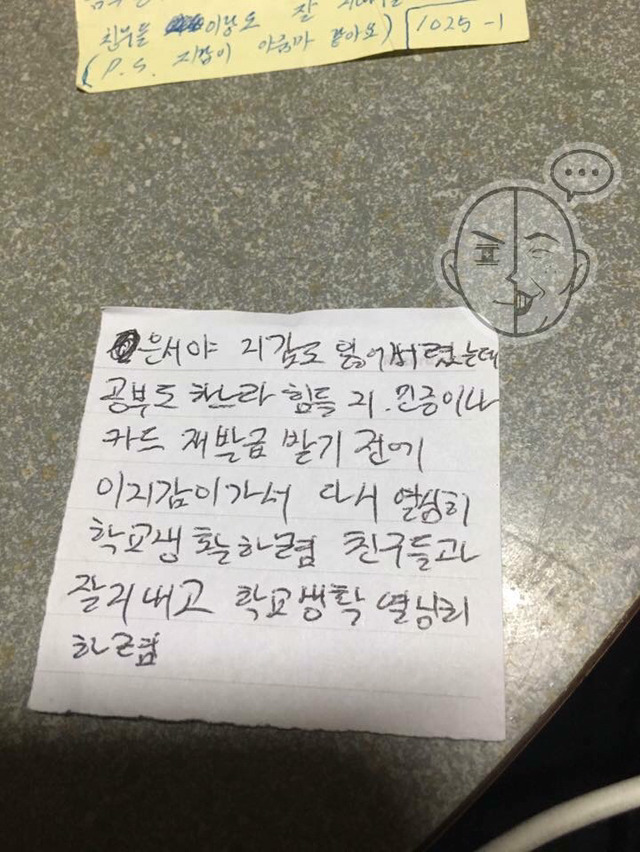 친구들 이랑도 잘
(P.S. 지갑이 아줌마 같아요) 1025-1
은서야 지갑도 잃어버렸는데
공부도 하느라 힘들지. 민증이나
카드 재발급 받기 전에
이지갑이가서 다시 열심히
학교생활하렴 친구들과
잘지내고 학교생활 열심히
하렴